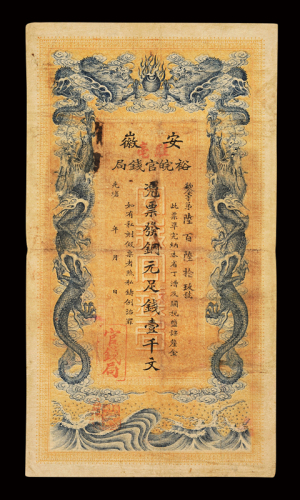 安徽
裕皖官錢局
字第陸百陸拾號
此票準完納本省丁漕及關稅鹽課釐金
憑票發銅元足錢壹千文
光緒 年 月 日
如有私刻假票者照私鑄例治罪
官錢局